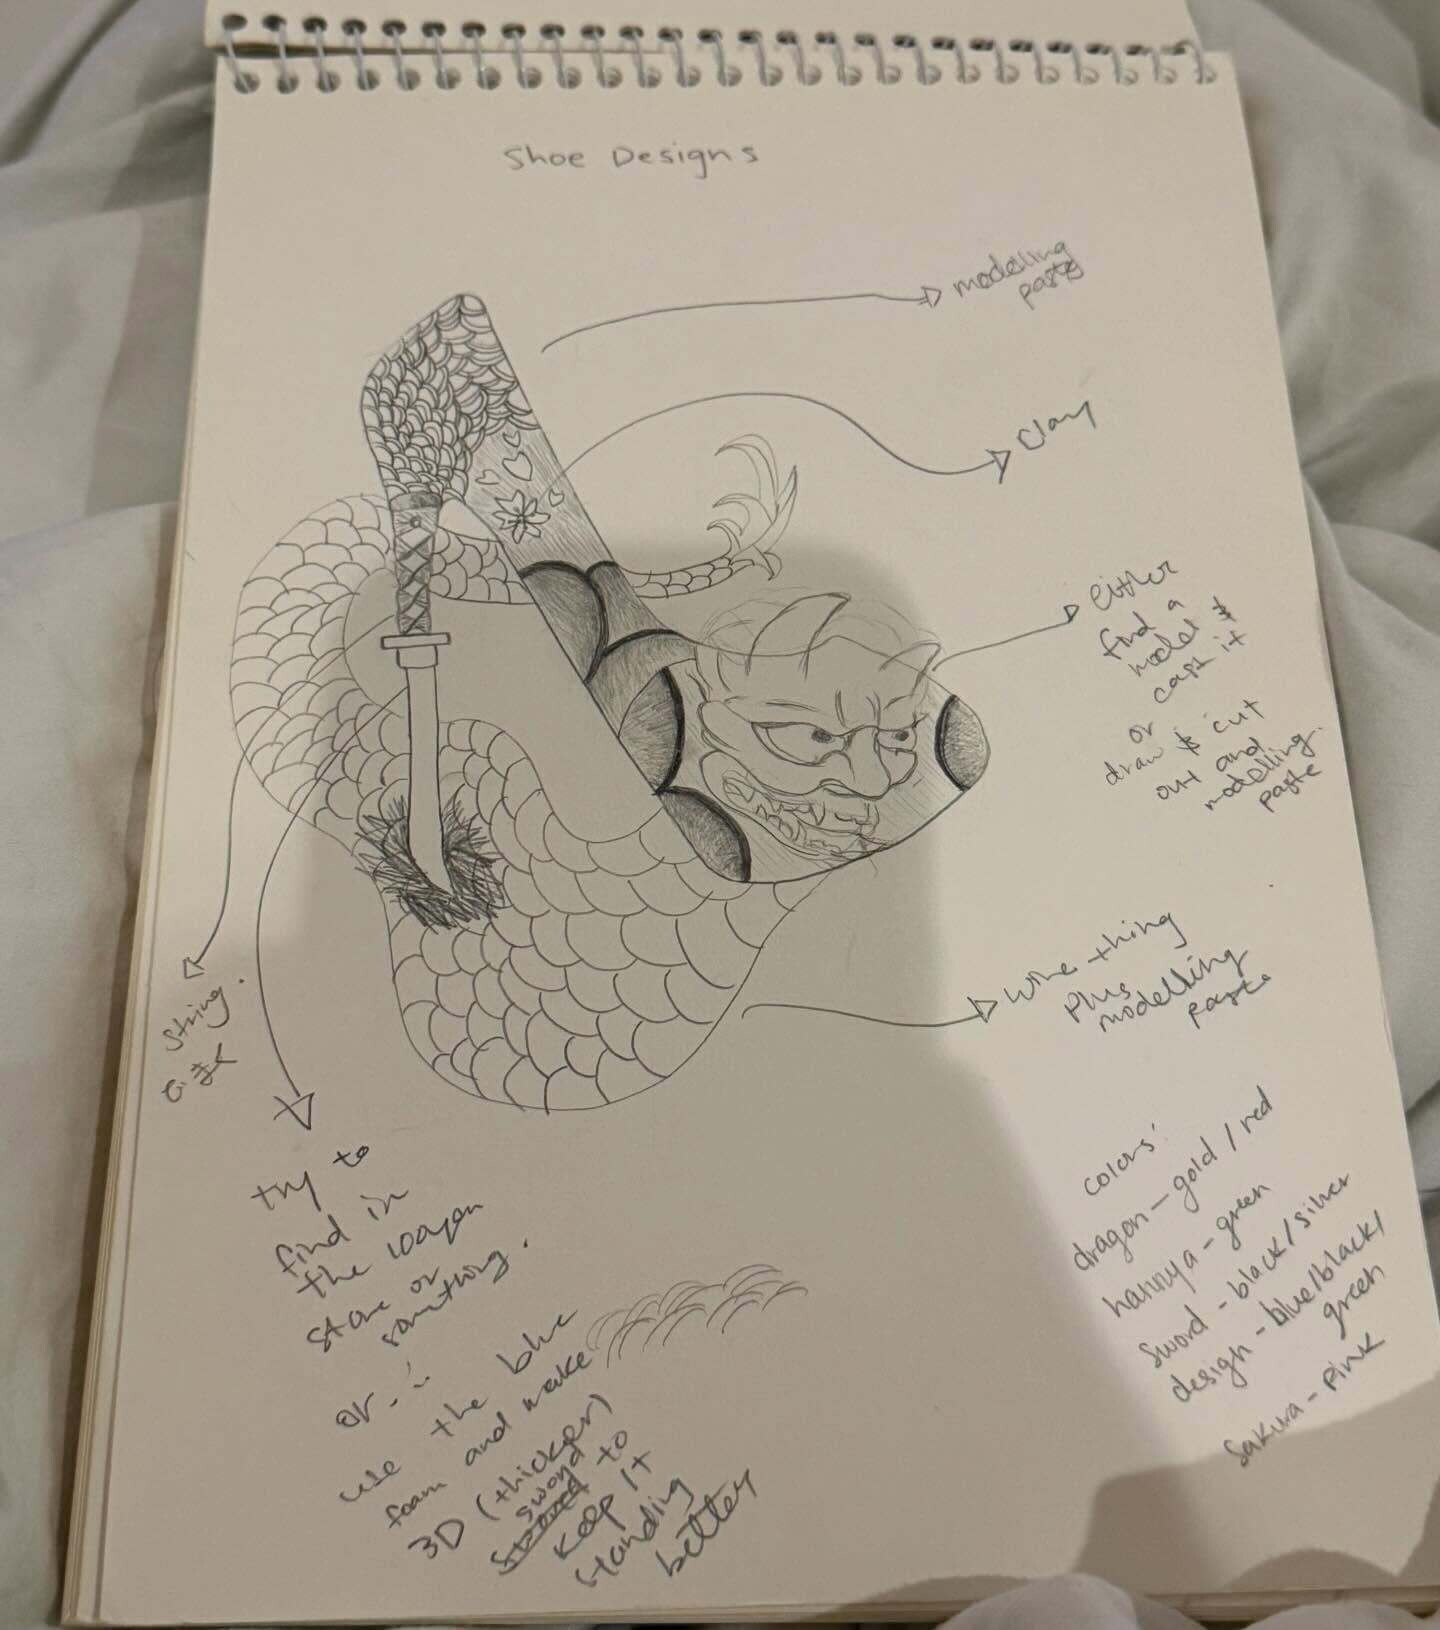 Shoe Designs
modelling
paste
Clay
either
find a
model &
cast it
or
draw & cut
out and
modelling
paste
wire thing
plus
modelling
paste
String
try to
find in
the 100yen
store or
something.
or..
use the blue
foam and make
3D (thicker)
sword
to
keep it
standing
better
colors:
dragon - gold / red
hannya - green
sword - black / silver
design - blue/black/
green
Sakura - pink